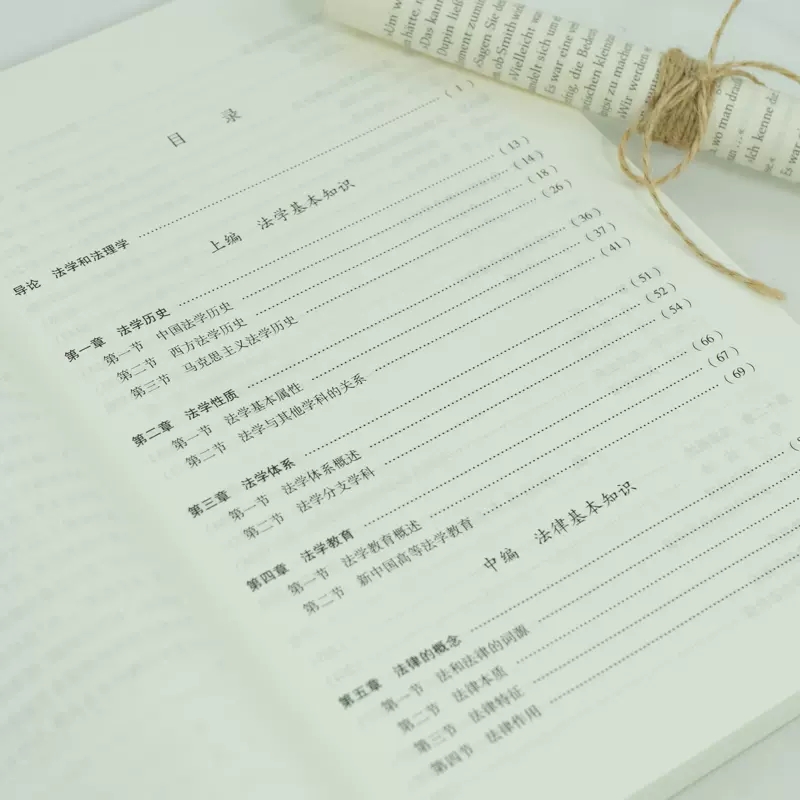 目 录
导论 法学和法理学 ……（1）
上编 法学基本知识
第一章 法学历史 ……（13）
第一节 中国法学历史 ……（14）
第二节 西方法学历史 ……（18）
第三节 马克思主义法学历史 ……（26）
第二章 法学性质 ……（36）
第一节 法学基本属性 ……（37）
第二节 法学与其他学科的关系 ……（41）
第三章 法学体系 ……（51）
第一节 法学体系概述 ……（52）
第二节 法学分支学科 ……（54）
第四章 法学教育 ……（66）
第一节 法学教育概述 ……（67）
第二节 新中国高等法学教育 ……（69）
中编 法律基本知识
第五章 法律的概念 ……
第一节 法和法律的词源 ……
第二节 法律本质 ……
第三节 法律特征 ……
第四节 法律作用 ……
›Um
hätte,
›Das kann
Dupin ließ
ment
›Sagen Sie
ob Smith
›Vielleicht
sich um
Es war eine
die
kleinen
zu machen
›Wir werden
wo man
›Ich kenne
Es war